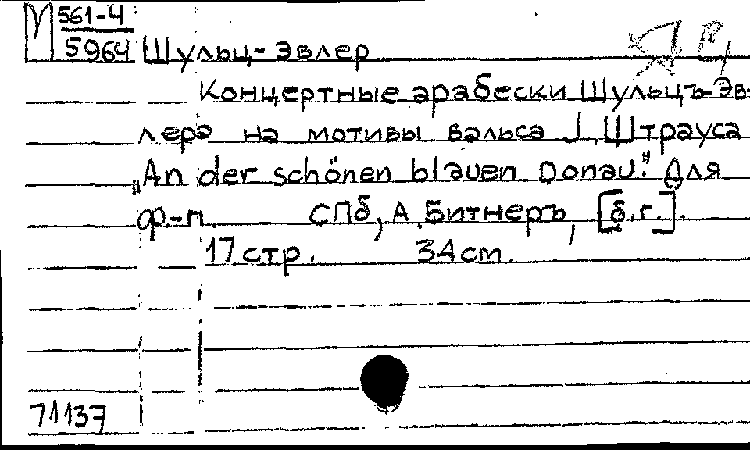 М 561-4
5964 Шульц-Эвлер
Концертные арабески Шульцъ-Эв-
лера на мотивы вальса J. Штрауса
„An der schönen blauen Donau." Для
ф-п. СПб, А. Битнеръ, [б.г.].
17 стр. 34 см.
71137